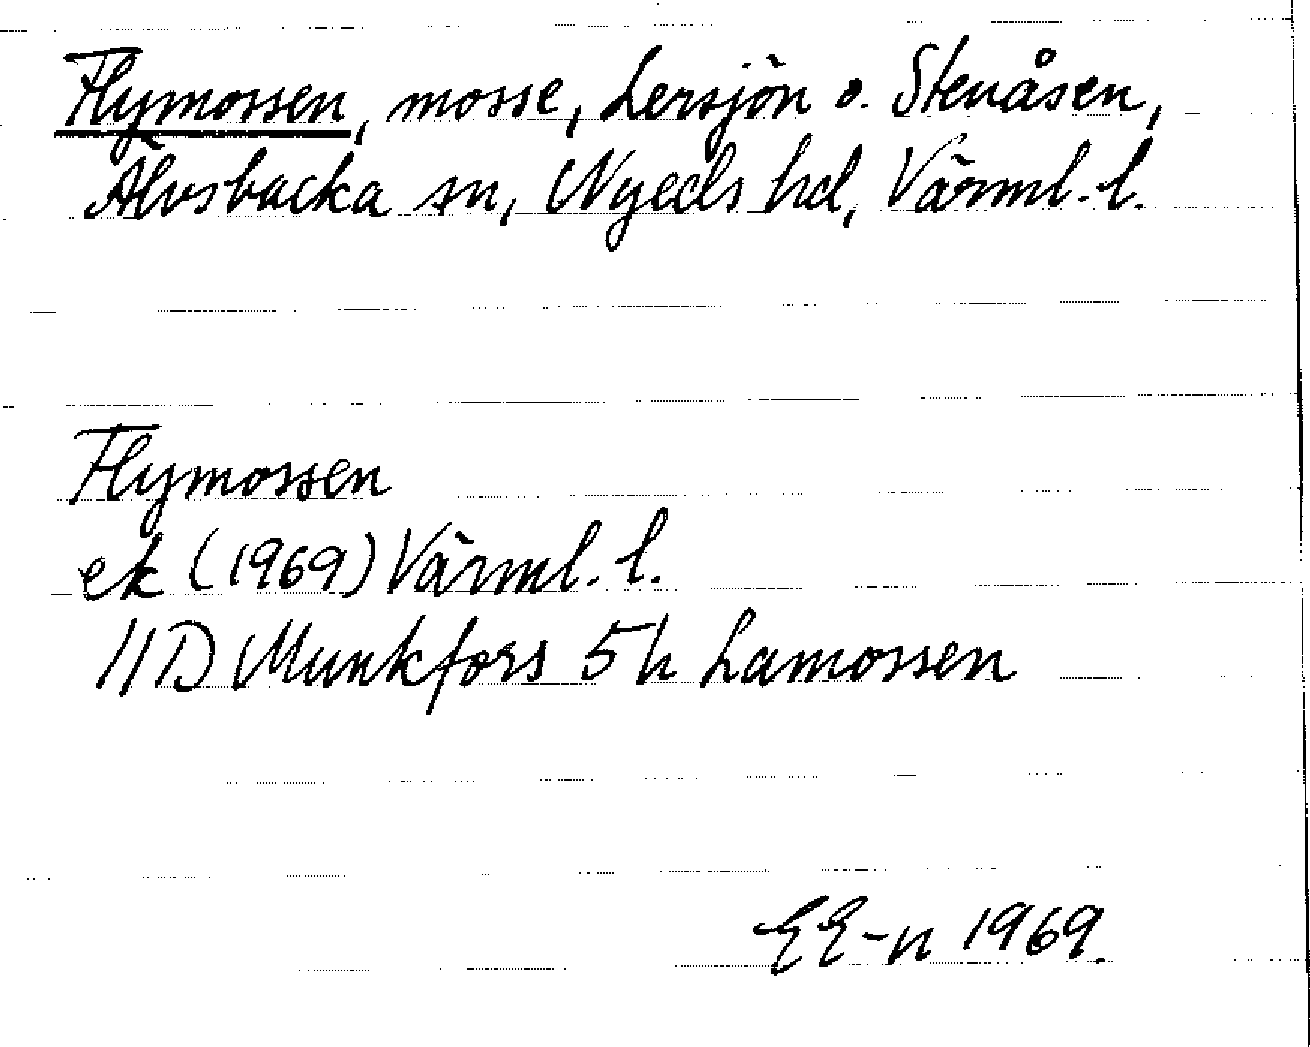 Flymossen, mosse, Lersjön o. Stenåsen,
Älvsbacka sn, Nyeds hd, Värml. l.
Flymossen
ek (1969) Värml. l.
11D Munkfors 5h Lamossen
EE-n 1969.